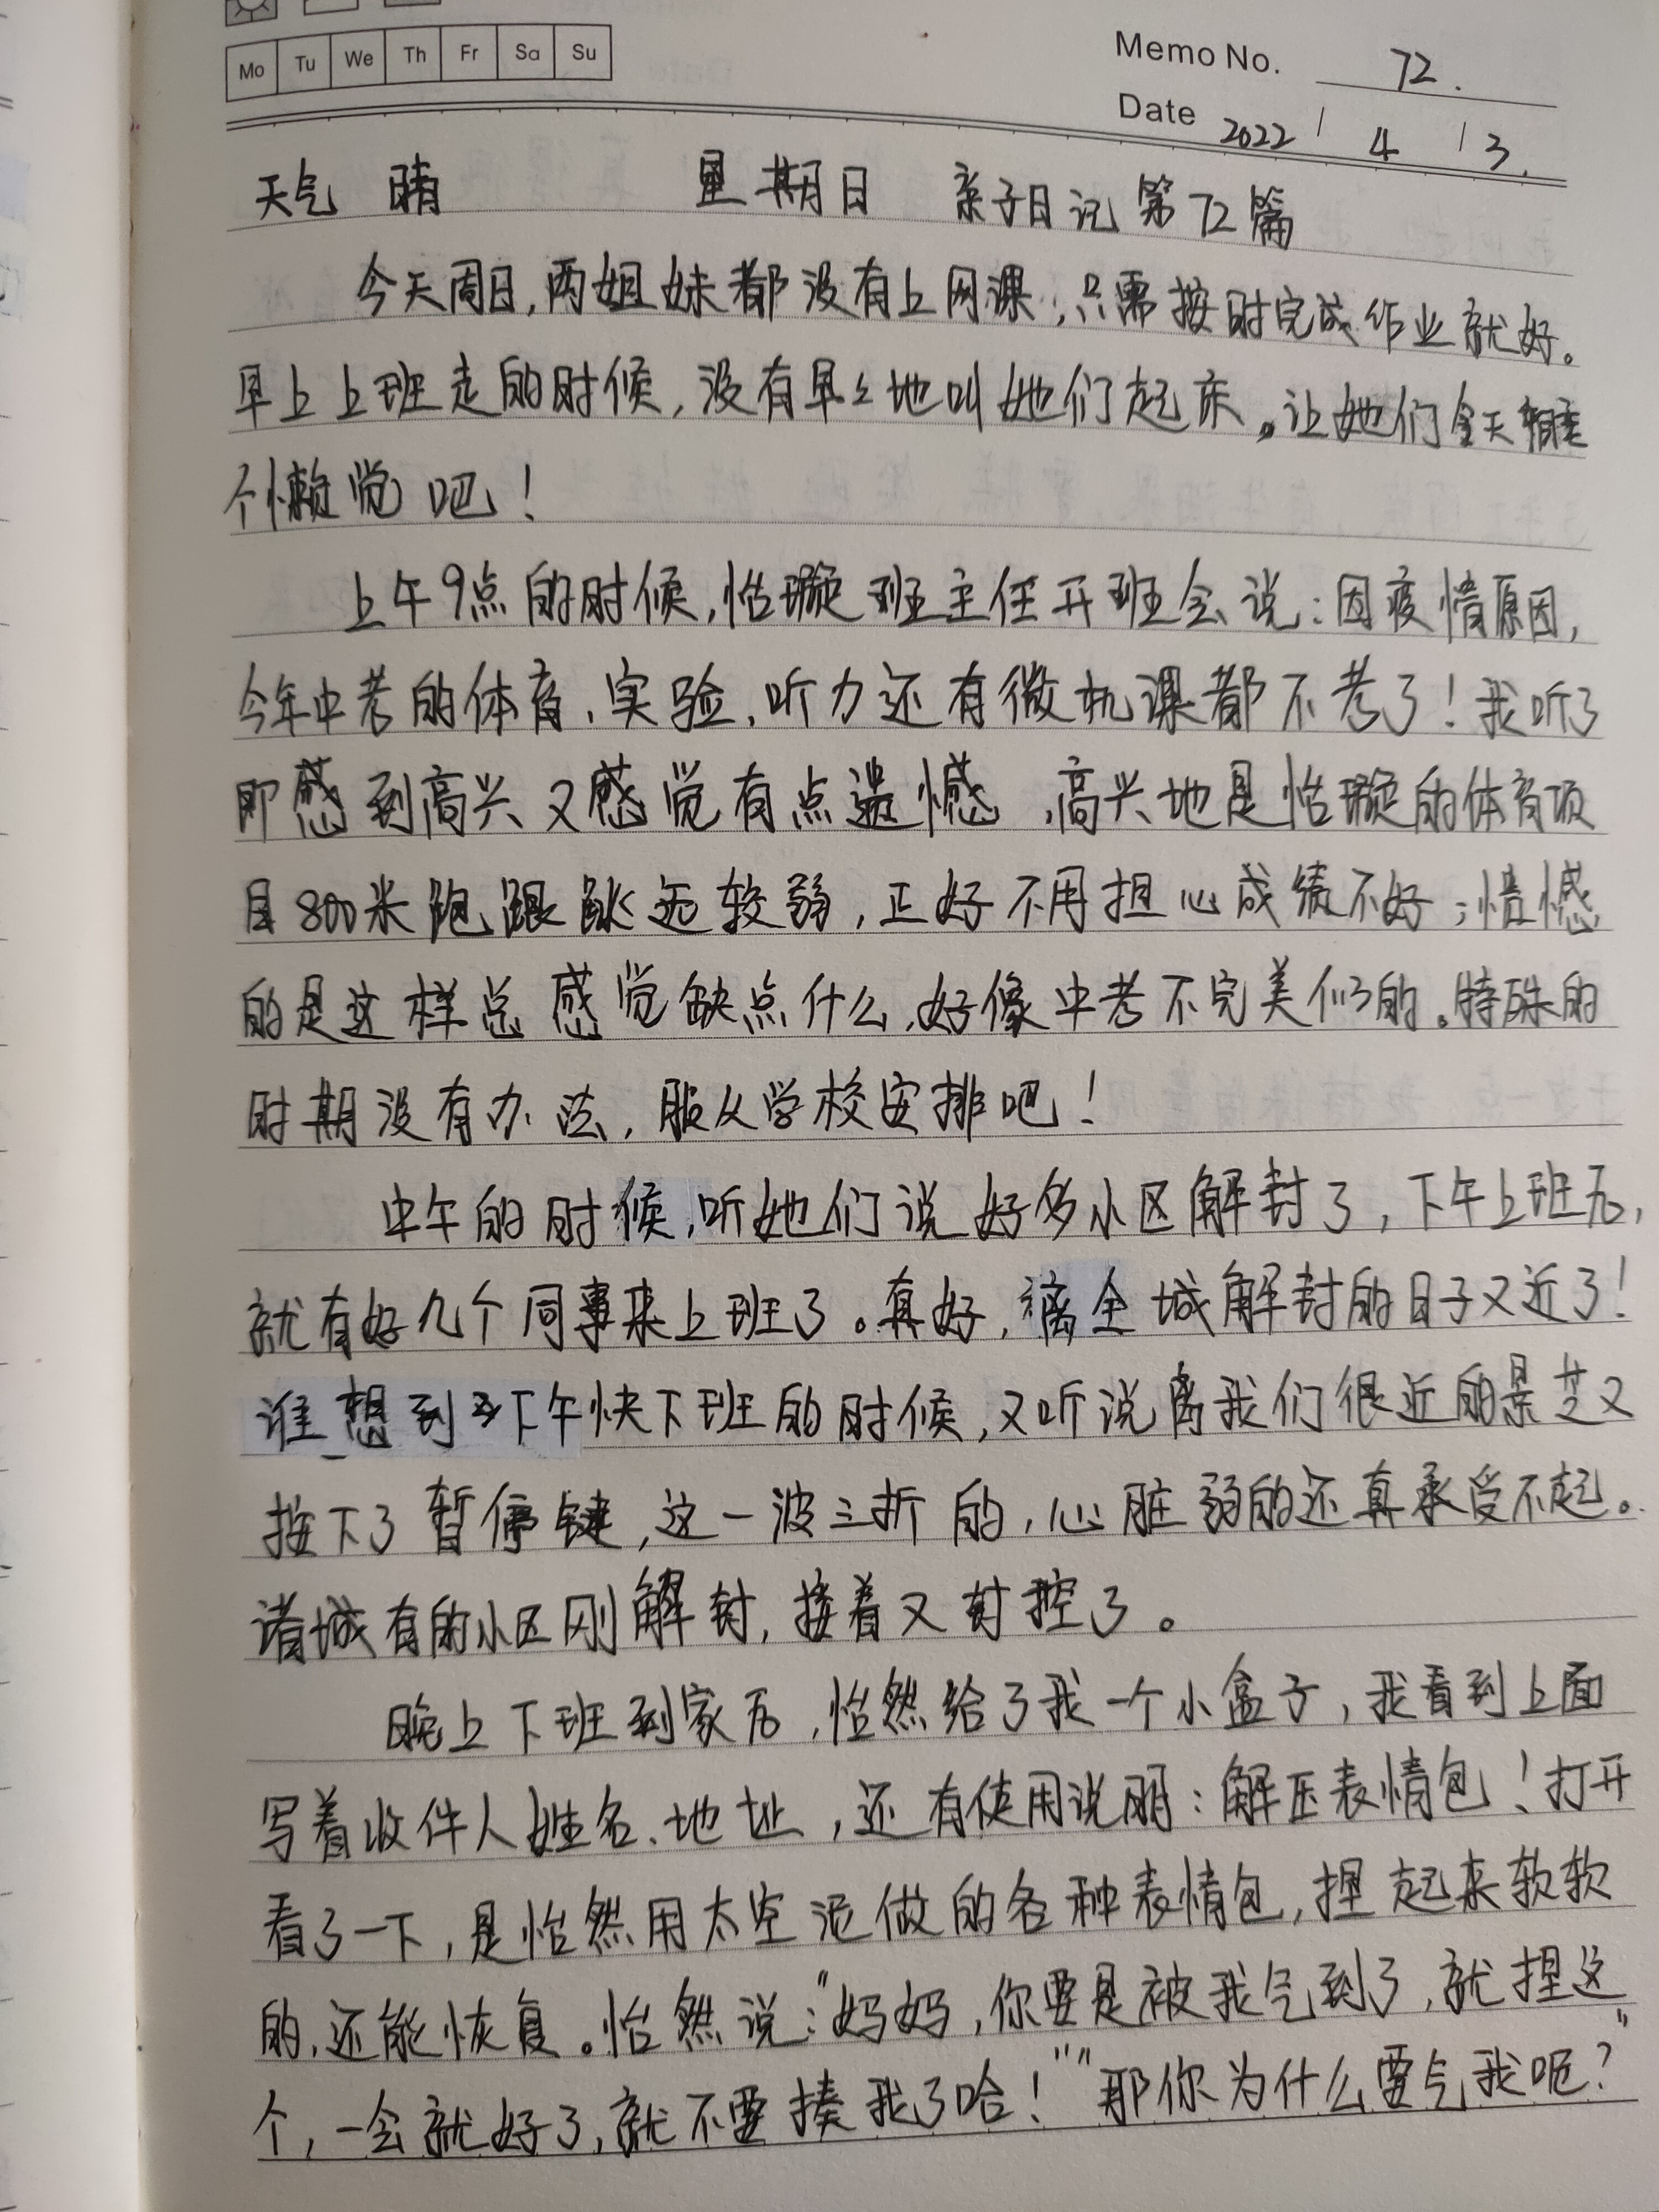 Mo Tu We Th Fr Sa Su
Memo No. 72.
Date 2022 / 4 / 3.
天气 晴 星期日 亲子日记第72篇
今天周日,两姐妹都没有上网课,只需按时完成作业就好。
早上上班走的时候,没有早早地叫她们起床。让她们今天睡
个懒觉吧!
上午9点的时候,怡璇班主任开班会说:因疫情原因,
今年中考的体育、实验、听力还有微机课都不考了!我听了
即感到高兴又感觉有点遗憾,高兴地是怡璇的体育项
目800米跑跟跳远较弱,正好不用担心成绩不好;惜憾
的是这样总感觉缺点什么,好像中考不完美似的。特殊的
时期没有办法,服从学校安排吧!
中午的时候,听她们说好多小区解封了,下午上班后,
就有好几个同事来上班了。真好,离全城解封的日子又近了!
谁想到下午快下班的时候,又听说离我们很近的景芝又
按下了暂停键,这一波三折的,心脏弱的还真承受不起。
诸城有的小区刚解封,接着又封控了。
晚上下班到家后,怡然给了我一个小盒子,我看到上面
写着收件人姓名、地址,还有使用说明:解压表情包!打开
看了一下,是怡然用太空泥做的各种表情包,捏起来软软
的,还能恢复。怡然说:"妈妈,你要是被我气到了,就捏这
个,一会就好了,就不要揍我了哈!""那你为什么要气我呢?"